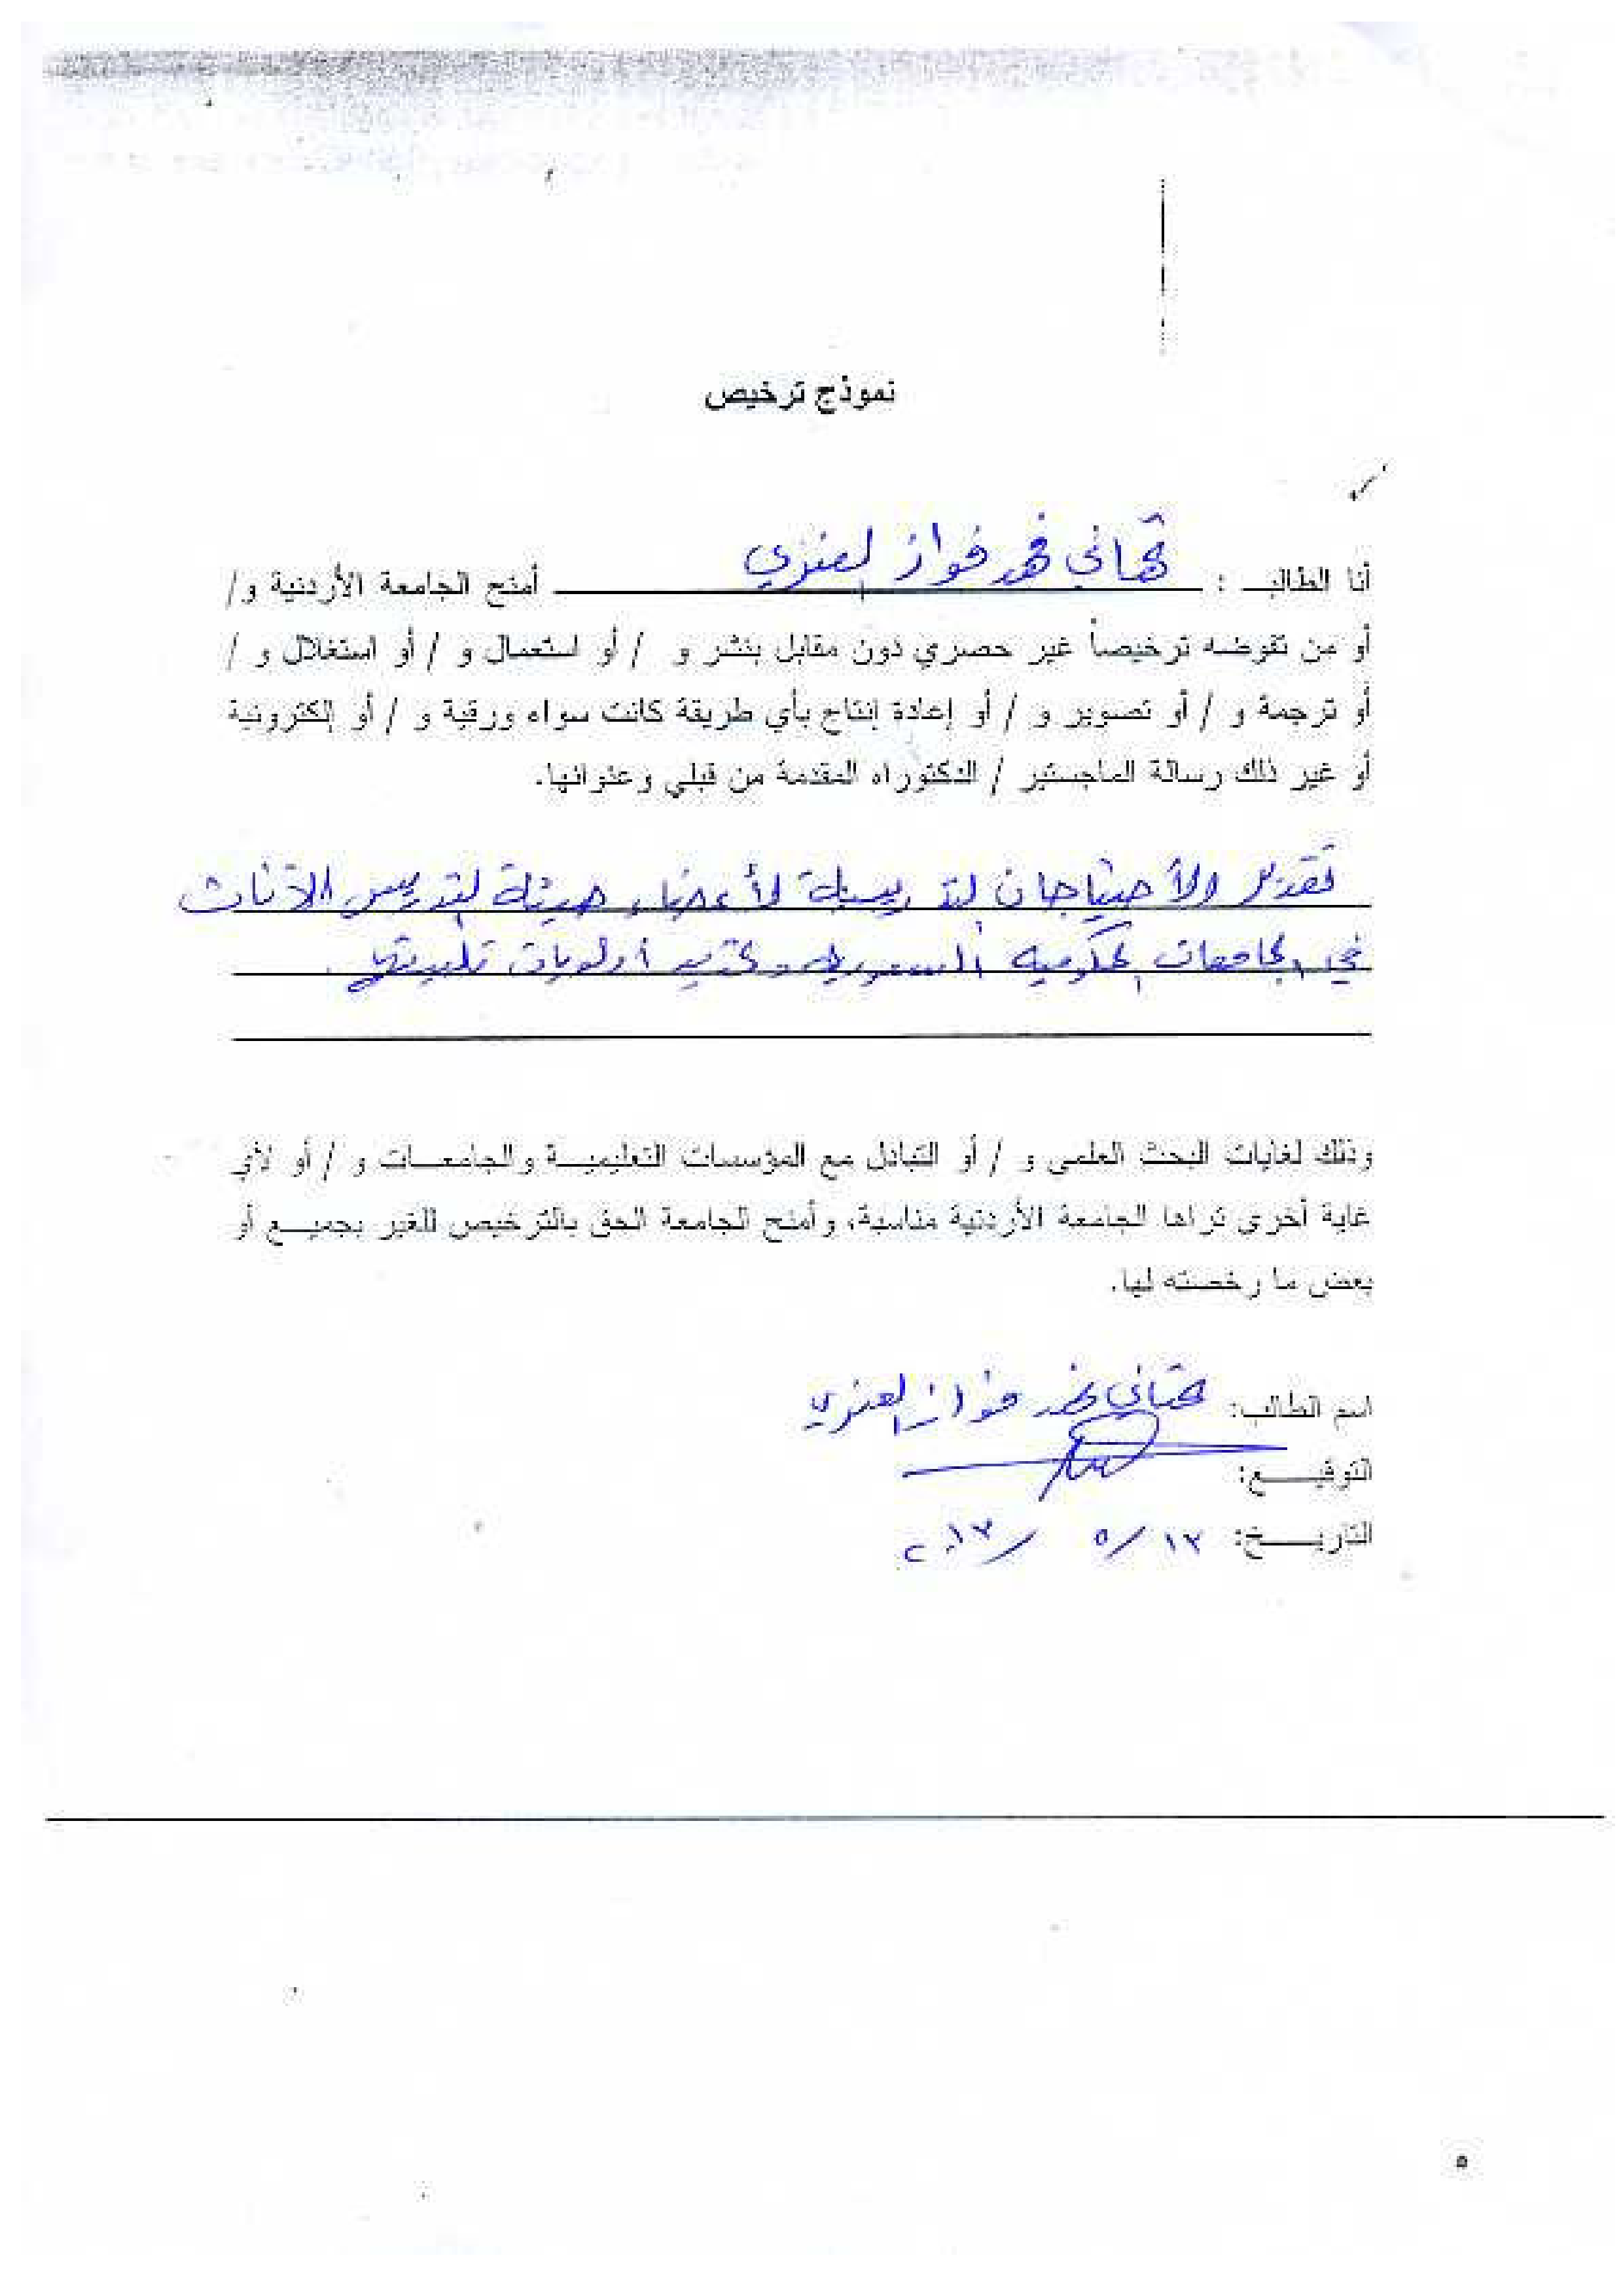 نموذج ترخيص
أنا الطالب : تهاني فهد فواز العنزي أمنح الجامعة الأردنية و/
أو من تفوضه ترخيصاً غير حصري دون مقابل بنشر و / أو استعمال و / أو استغلال و /
أو ترجمة و / أو تصوير و / أو إعادة إنتاج بأي طريقة كانت سواء ورقية و / أو إلكترونية
أو غير ذلك رسالة الماجستير / الدكتوراه المقدمة من قبلي وعنوانها.
تقدير الاحتياجات التدريبية لأعضاء هيئة التدريس الاناث
في الجامعات الحكومية السعودية وتحديد أولويات تلبيتها
وذلك لغايات البحث العلمي و / أو التبادل مع المؤسسات التعليمية والجامعات و / أو لأي
غاية أخرى تراها الجامعة الأردنية مناسبة، وأمنح الجامعة الحق بالترخيص للغير بجميع أو
بعض ما رخصته لها.
اسم الطالب: تهاني فهد فواز العنزي
التوقيع:
التاريخ: ١٣ / ٥ / ٢٠١٣
٥